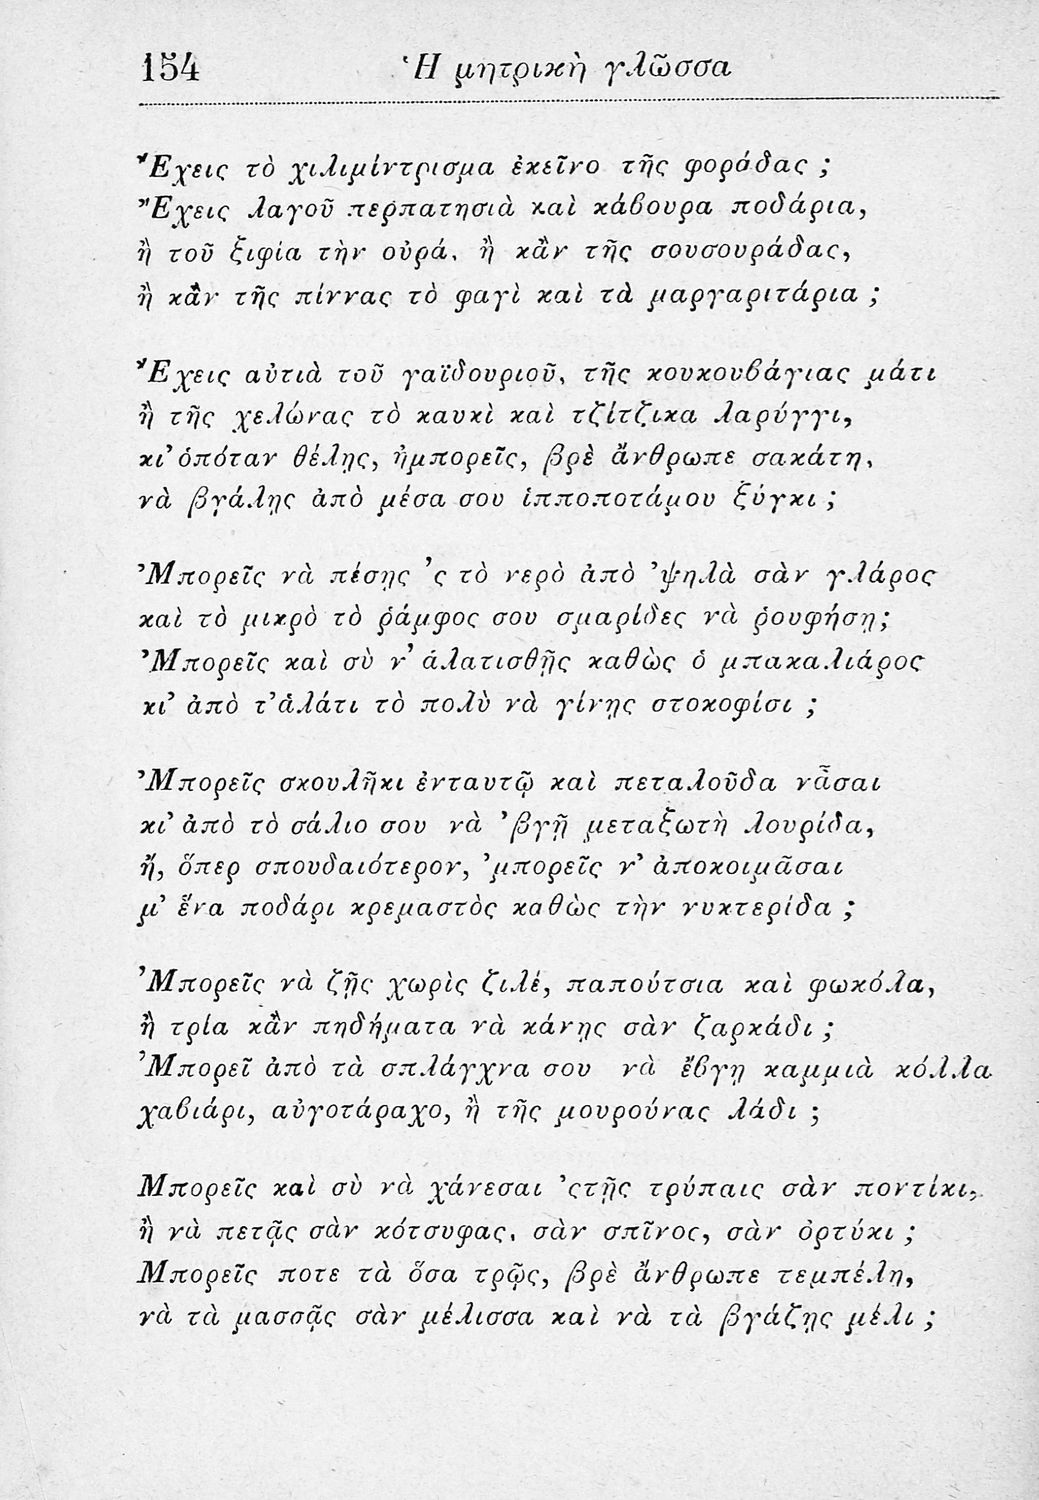 154 Ἡ μητρικὴ γλῶσσα
Ἔχεις τὸ χιλιμίντρισμα ἐκεῖνο τῆς φοράδας ;
Ἔχεις λαγοῦ περπατησιὰ καὶ κάβουρα ποδάρια,
ἢ τοῦ ξιφία τὴν οὐρά, ἢ κἂν τῆς σουσουράδας,
ἢ κἂν τῆς πίννας τὸ φαγὶ καὶ τὰ μαργαριτάρια ;
Ἔχεις αὐτιὰ τοῦ γαϊδουριοῦ, τῆς κουκουβάγιας μάτι
ἢ τῆς χελώνας τὸ καυκὶ καὶ τζίτζικα λαρύγγι,
κι’ ὁπόταν θέλῃς, ἠμπορεῖς, βρὲ ἄνθρωπε σακάτη,
νὰ βγάλῃς ἀπὸ μέσα σου ἱπποποτάμου ξύγκι ;
’Μπορεῖς νὰ πέσῃς ’ς τὸ νερὸ ἀπὸ ’ψηλὰ σὰν γλάρος
καὶ τὸ μικρὸ τὸ ῥάμφος σου σμαρίδες νὰ ῥουφήσῃ;
’Μπορεῖς καὶ σὺ ν’ ἁλατισθῇς καθὼς ὁ μπακαλιάρος
κι’ ἀπὸ τ’ἁλάτι τὸ πολὺ νὰ γίνῃς στοκοφίσι ;
’Μπορεῖς σκουλῆκι ἐνταυτῷ καὶ πεταλοῦδα νἆσαι
κι’ ἀπὸ τὸ σάλιο σου νὰ ’βγῇ μεταξωτὴ λουρίδα,
ἤ, ὅπερ σπουδαιότερον, ’μπορεῖς ν’ ἀποκοιμᾶσαι
μ’ ἕνα ποδάρι κρεμαστὸς καθὼς τὴν νυκτερίδα ;
’Μπορεῖς νὰ ζῇς χωρὶς ζιλέ, παπούτσια καὶ φωκόλα,
ἢ τρία κἂν πηδήματα νὰ κάνῃς σὰν ζαρκάδι ;
’Μπορεῖ ἀπὸ τὰ σπλάγχνα σου νὰ ἔβγῃ καμμιὰ κόλλα
χαβιάρι, αὐγοτάραχο, ἢ τῆς μουρούνας λάδι ;
Μπορεῖς καὶ σὺ νὰ χάνεσαι ’ςτῇς τρύπαις σὰν ποντίκι,
ἢ νὰ πετᾷς σὰν κότσυφας, σὰν σπῖνος, σὰν ὀρτύκι ;
Μπορεῖς ποτε τὰ ὅσα τρῷς, βρὲ ἄνθρωπε τεμπέλη,
νὰ τὰ μασσᾷς σὰν μέλισσα καὶ νὰ τὰ βγάζῃς μέλι ;